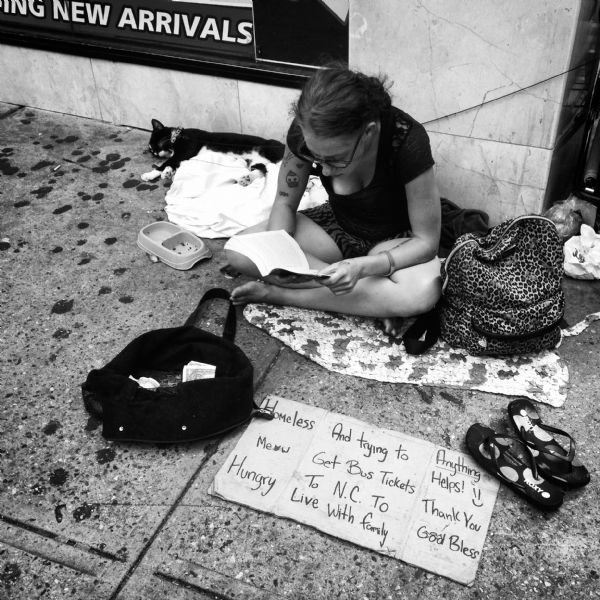 ING NEW ARRIVALS
Homeless
Meow
Hungry
And trying to
Get Bus Tickets
To N.C. To
Live With family
Anything
Helps! :)
Thank You
God Bless